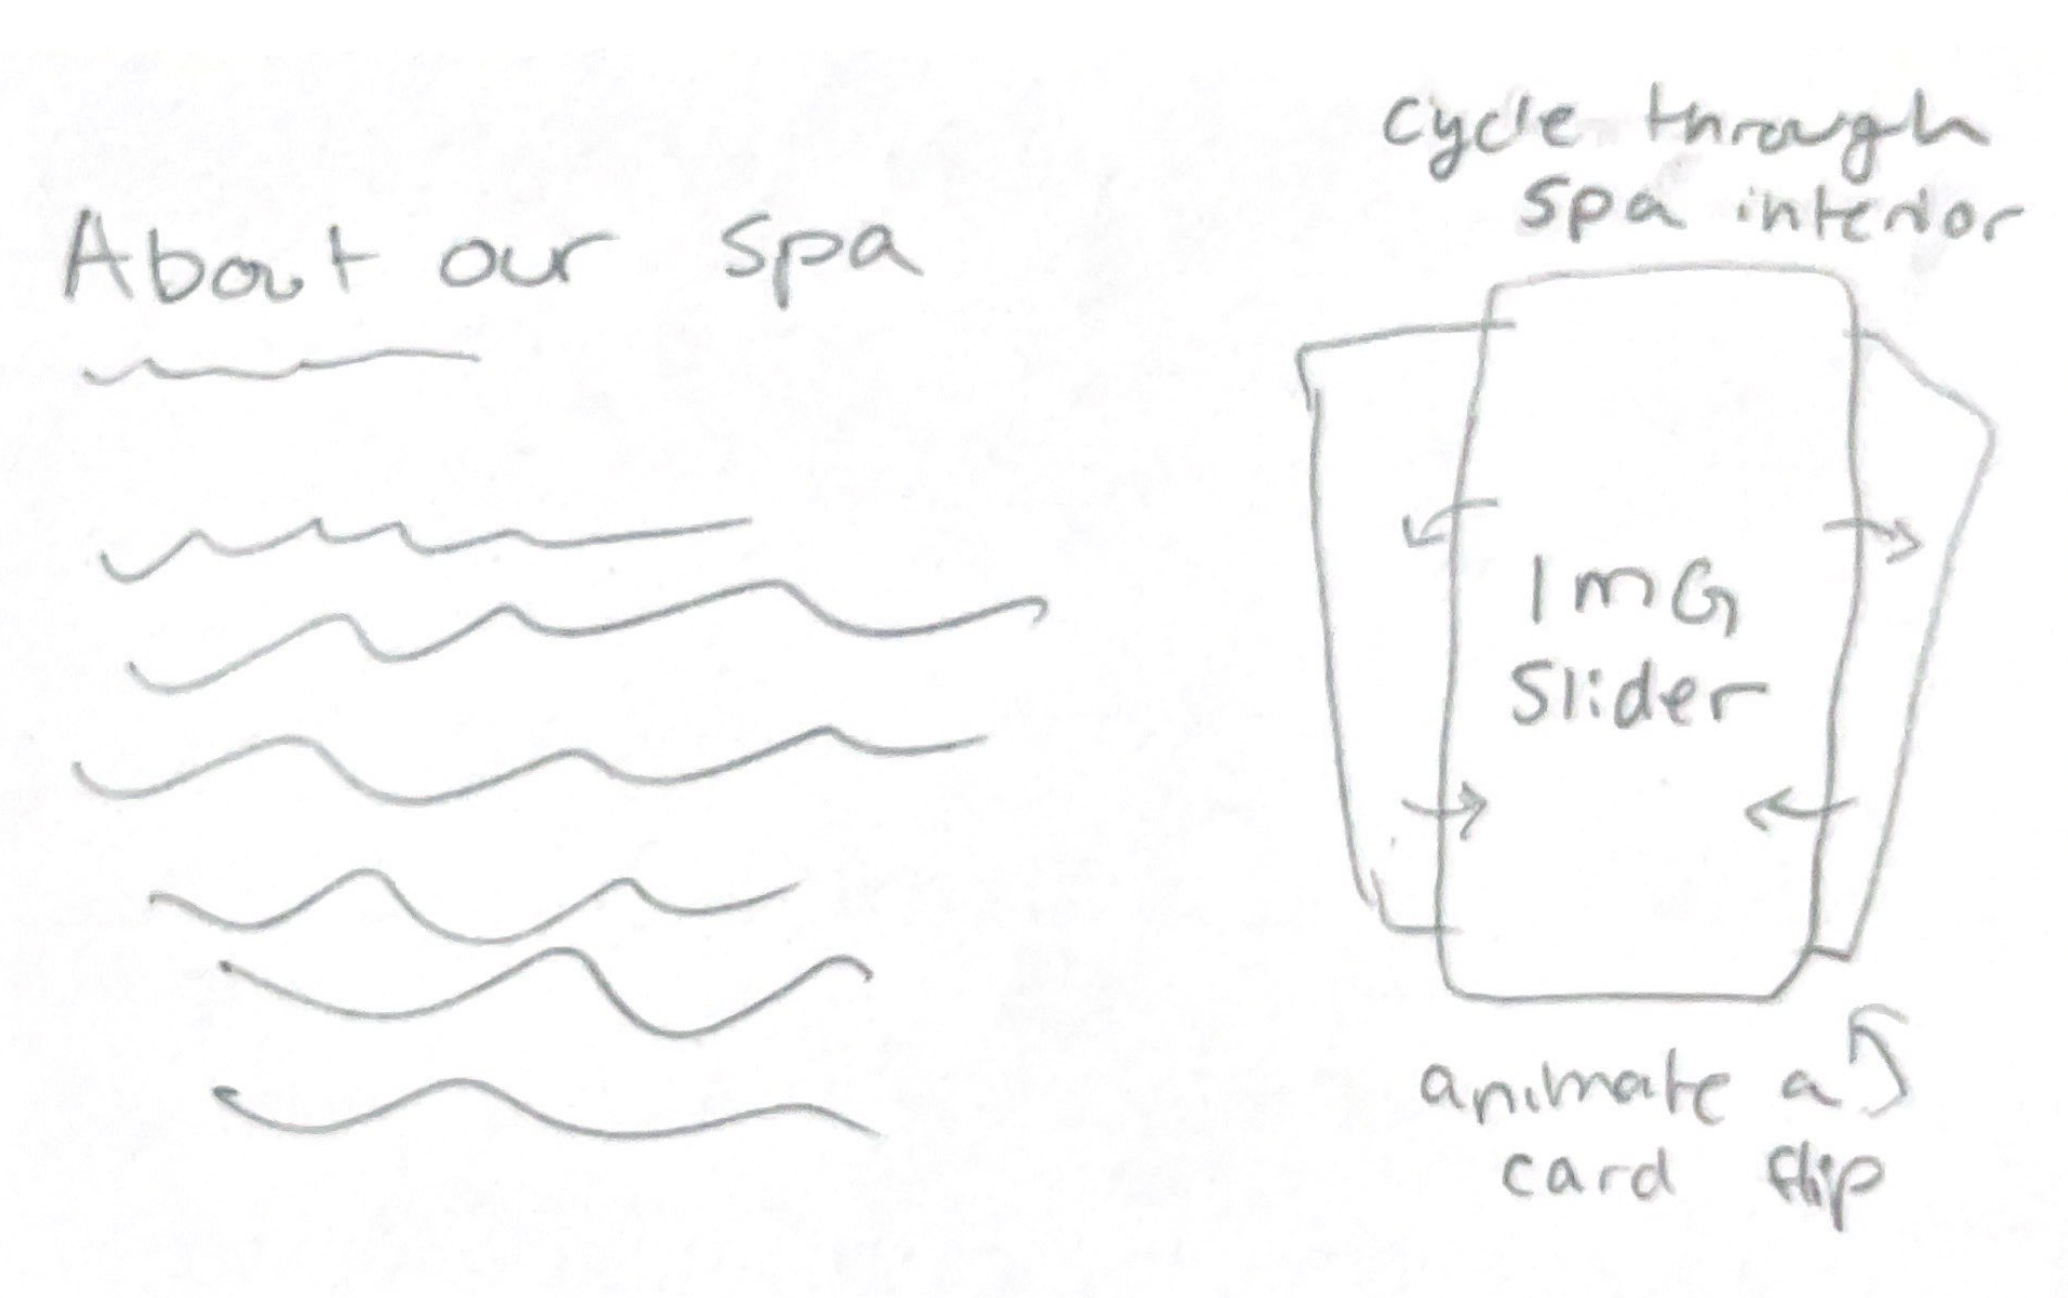 About our spa
cycle through
spa interior
IMG
Slider
animate a
card flip